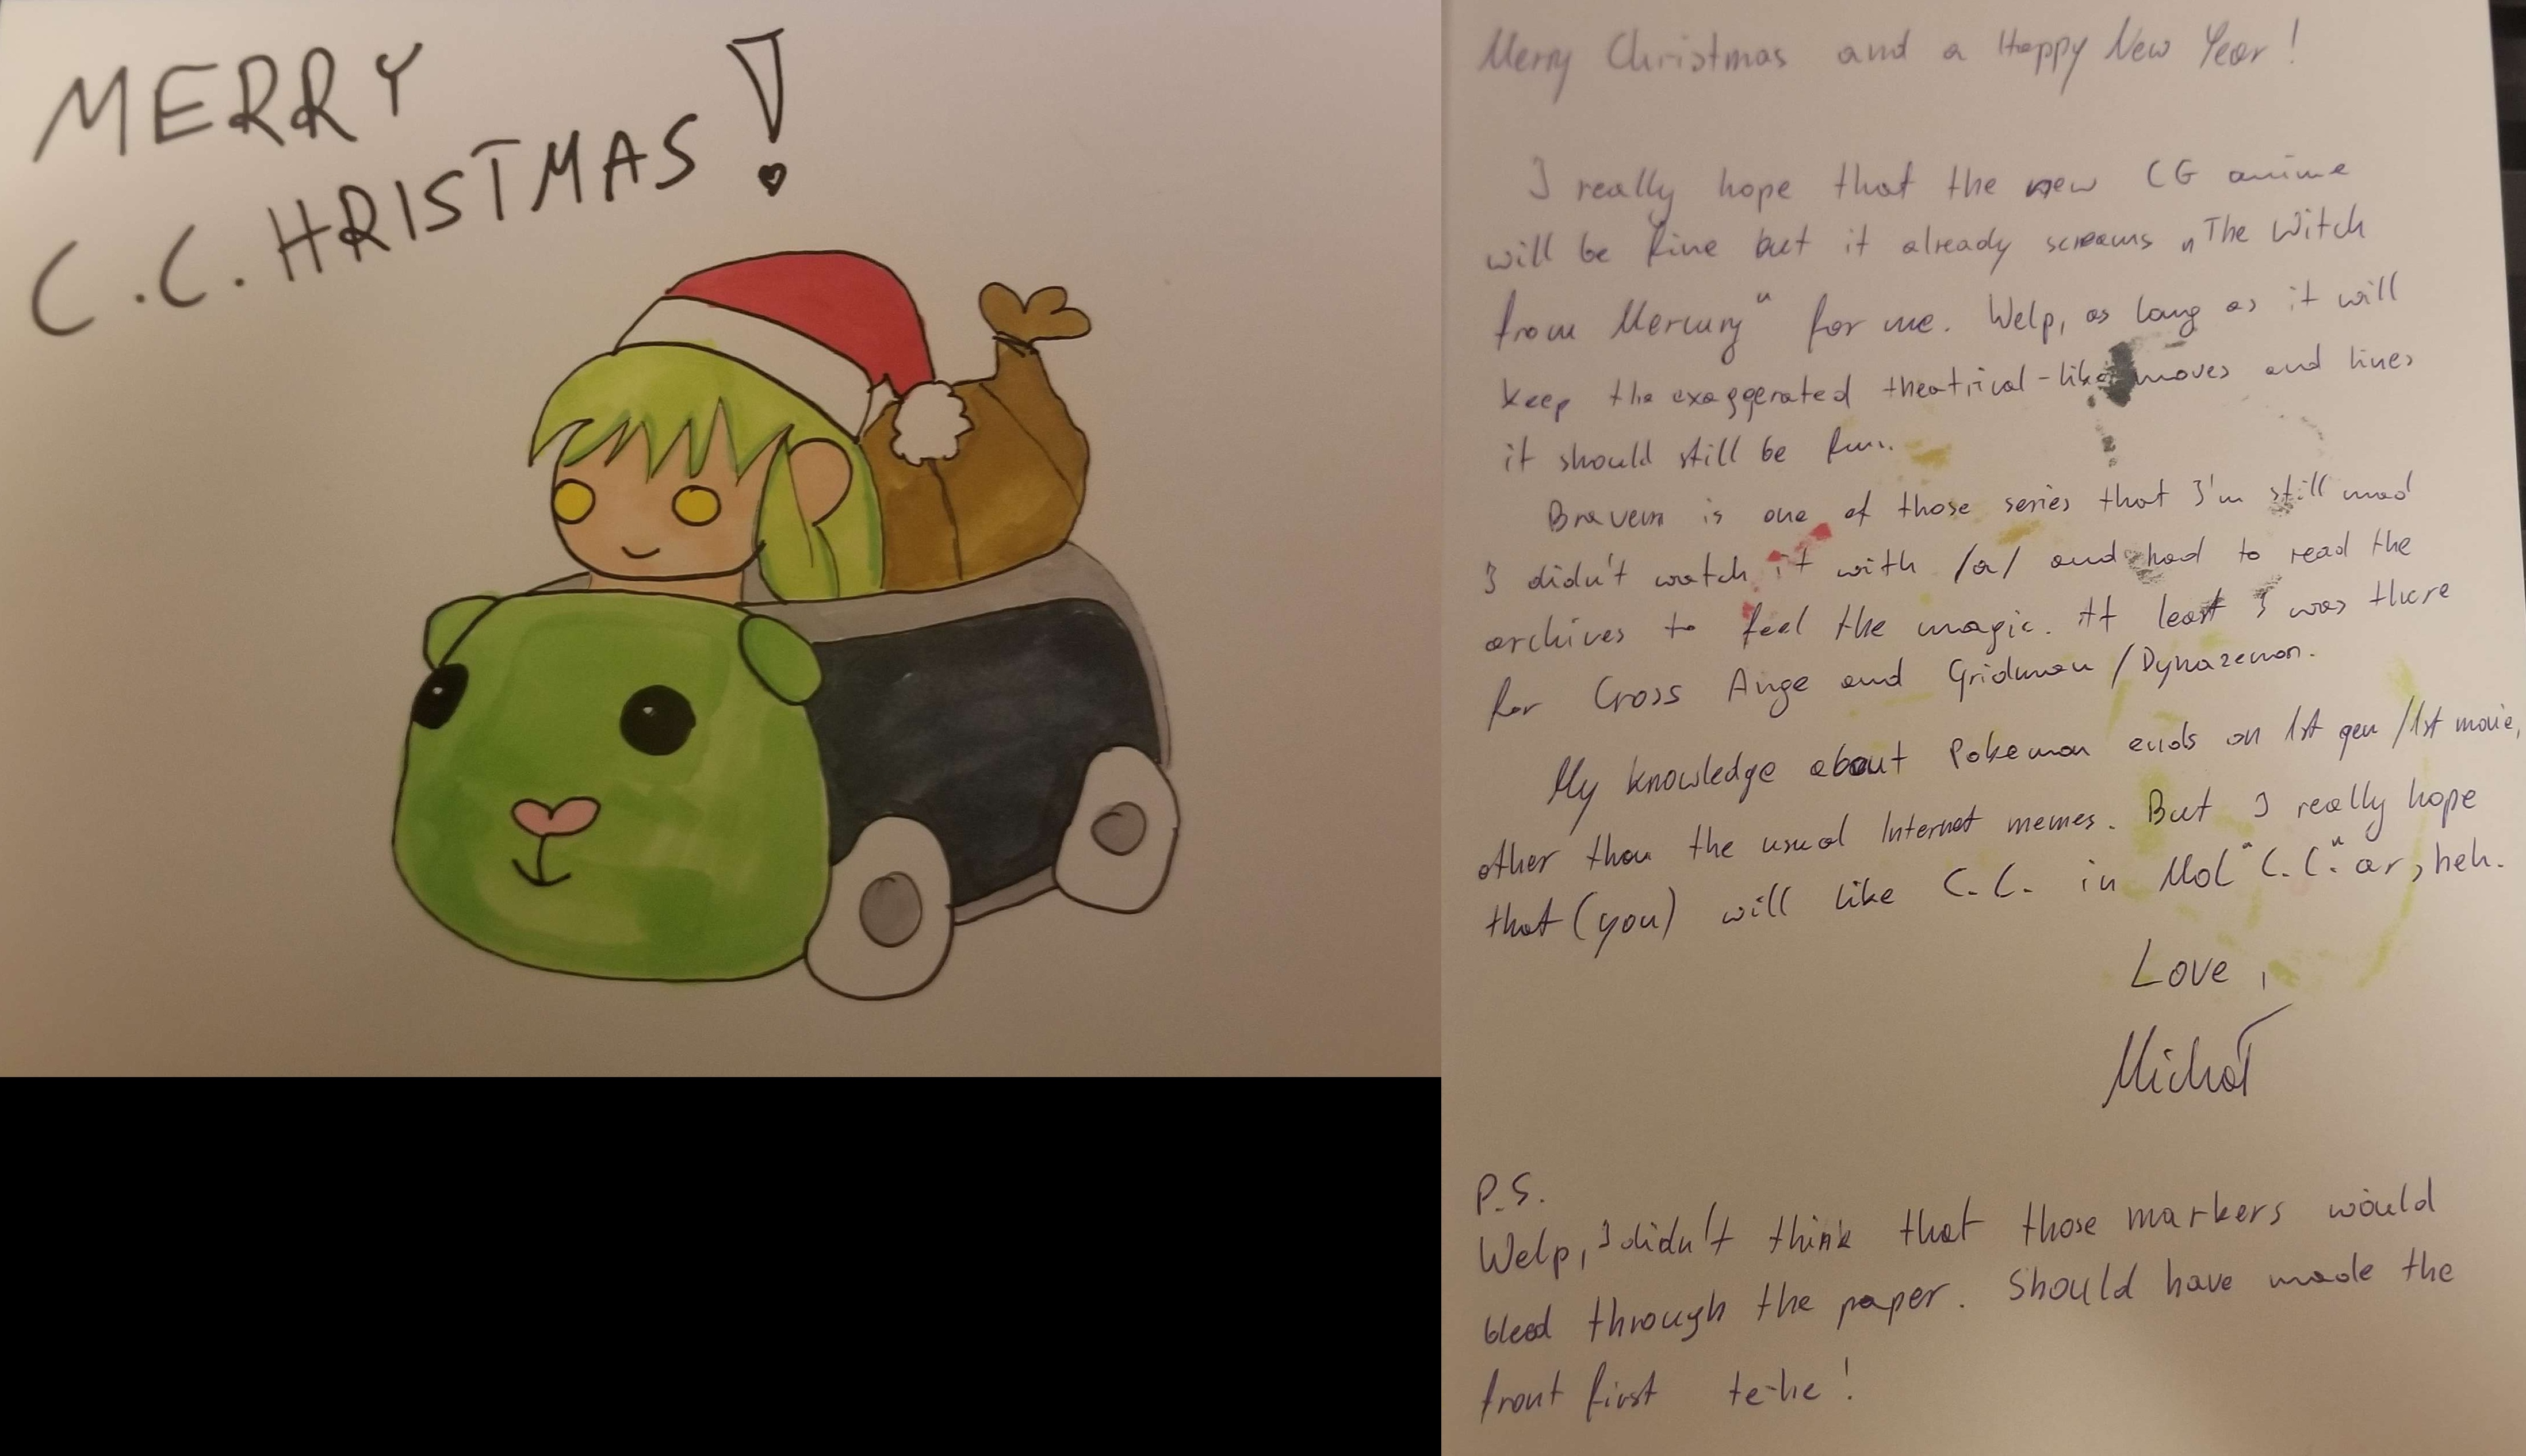 MERRY
C.C.HRISTMAS!
Merry Christmas and a Happy New Year!
I really hope that the new CG anime
will be fine but it already screams „The Witch
from Mercury" for me. Welp, as long as it will
keep the exaggerated theatrical-like moves and lines
it should still be fun.
Bravern is one of those series that I'm still mad
I didn't watch it with /a/ and had to read the
archives to feel the magic. At least I was there
for Cross Ange and Gridman/Dynazenon.
My knowledge about Pokemon ends on 1st gen/1st movie,
other than the usual Internet memes. But I really hope
that (you) will like C.C. in Mol"C.C."ar, heh.
Love,
Michał
P.S.
Welp, I didn't think that those markers would
bleed through the paper. Should have made the
front first te-he!